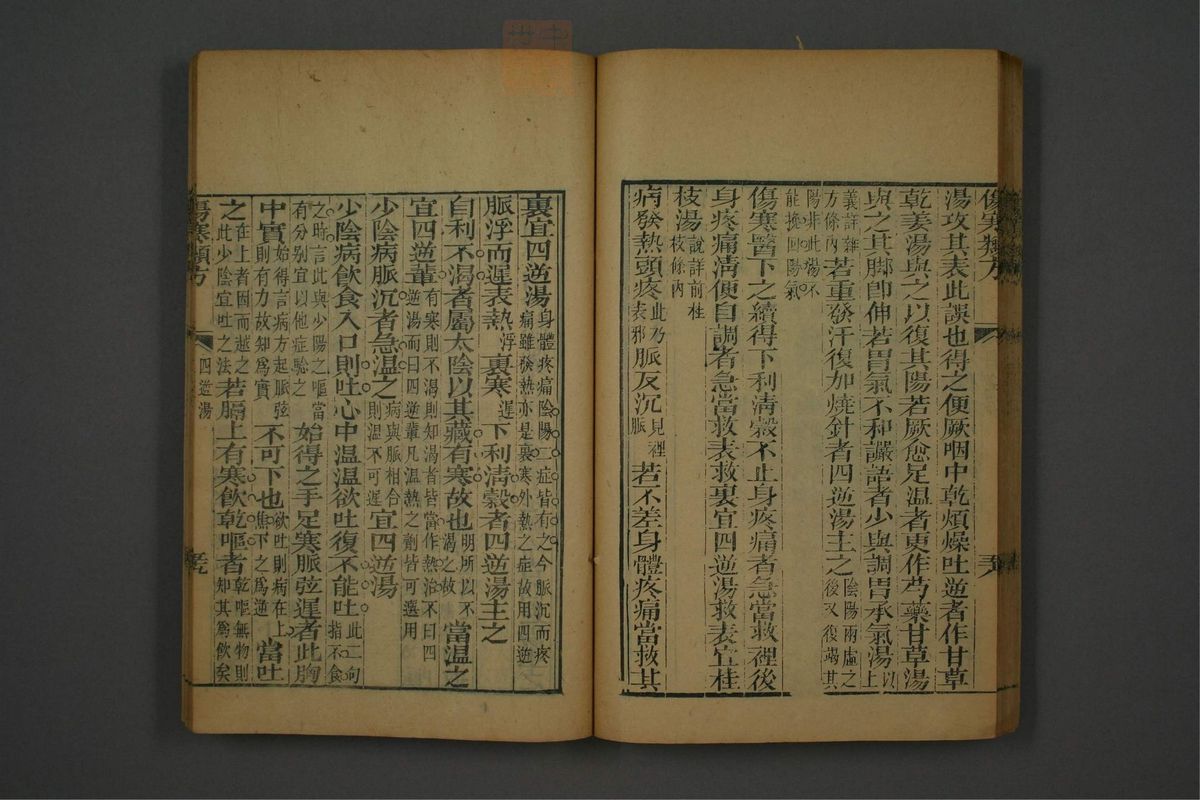 傷寒類方
湯攻其表此誤也得之便厥咽中乾煩燥吐逆者作甘草
乾姜湯與之以復其陽若厥愈足温者更作芍藥甘草湯
與之其脚卽伸若胃氣不和讝語者少與調胃承氣湯以上
義詳雜方條內若重發汗復加燒針者四逆湯主之陰陽兩虛之後又復竭其
陽非此湯不能挽回陽氣
傷寒醫下之續得下利淸穀不止身疼痛者急當救裡後
身疼痛淸便自調者急當救表救裏宜四逆湯救表宜桂
枝湯說詳前桂枝條內
病發熱頭疼此乃表邪脈反沉見裡脈若不差身體疼痛當救其
裏宜四逆湯身體疼痛陰陽二症皆有之今脈沉而疼痛雖發熱亦是裏寒外熱之症故用四逆
脈浮而遲表熱浮裏寒遲下利淸穀者四逆湯主之
自利不渴者屬太陰以其藏有寒故也明所以不渴之故當温之
宜四逆輩有寒則不渴則知渴者皆當作熱治不曰四逆湯而曰四逆輩凡温熱之劑皆可選用
少陰病脈沉者急温之病與脈相合則温不可遲宜四逆湯
少陰病飲食入口則吐心中温温欲吐復不能吐此二句指不食
之時言此與少陽之嘔當有分别宜以他症驗之始得之手足寒脈弦遲者此胸
中實始得言病方起脈弦則有力故知爲實不可下也欲吐則病在上焦下之爲逆當吐
之在上者因而越之此少陰宜吐之法若膈上有寒飲乾嘔者乾嘔無物則知其爲飲矣
傷寒類方 四逆湯